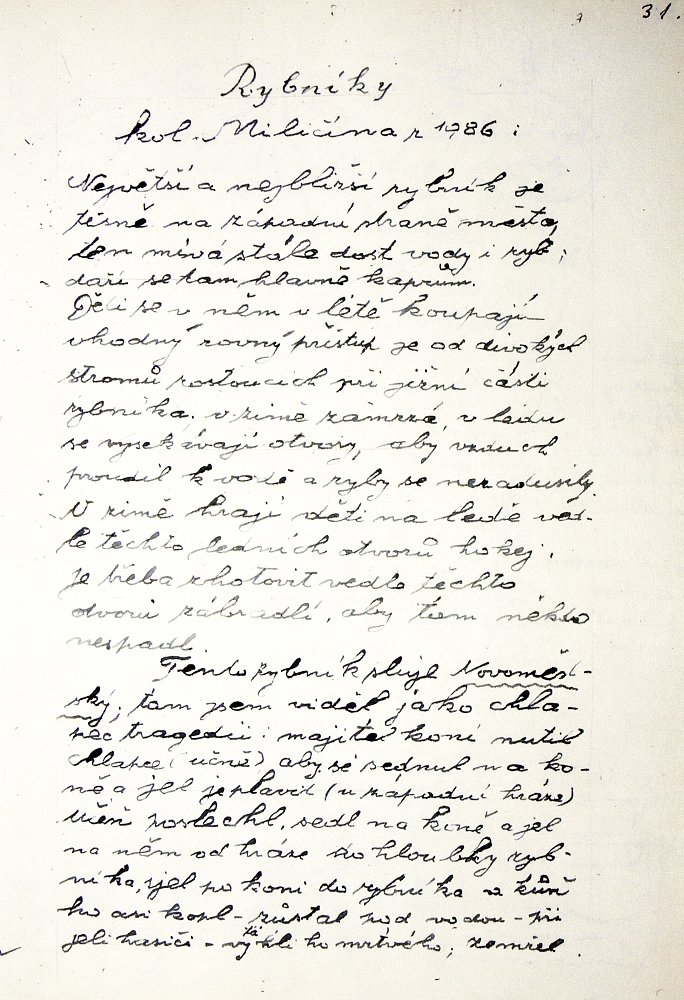 31.
Rybníky
kol. Miličína r 1986:
Největší a nejbližší rybník je
těsně na západní straně města,
ten mívá stále dost vody i ryb;
daří se tam hlavně kaprům.
Děti se v něm v létě koupají
vhodný rovný přístup je od divokých
stromů rostoucích při jižní části
rybníka. v zimě zamrzá, v ledu
se vysekávají otvory, aby vzduch
proudil k vodě a ryby se nezadusily.
V zimě hrají děti na ledě ved-
le těchto ledních otvorů hokej.
je třeba zhotovit vedle těchto
otvorů zábradlí, aby tam někdo
nespadl.
Tento rybník sluje Novoměst-
ský; tam jsem viděl jako chla-
pec tragedii: majitel koní nutil
chlapce (učně) aby se sednul na ko-
ně a jel je plavit (u západní hráze)
Učeň poslechl, sedl na koně a jel
na něm od hráze do hloubky ryb-
níka, sjel po koni do rybníka a kůň
ho asi kopl - zůstal pod vodou - při
jeli hasiči - vytáhli ho mrtvého; zemřel.